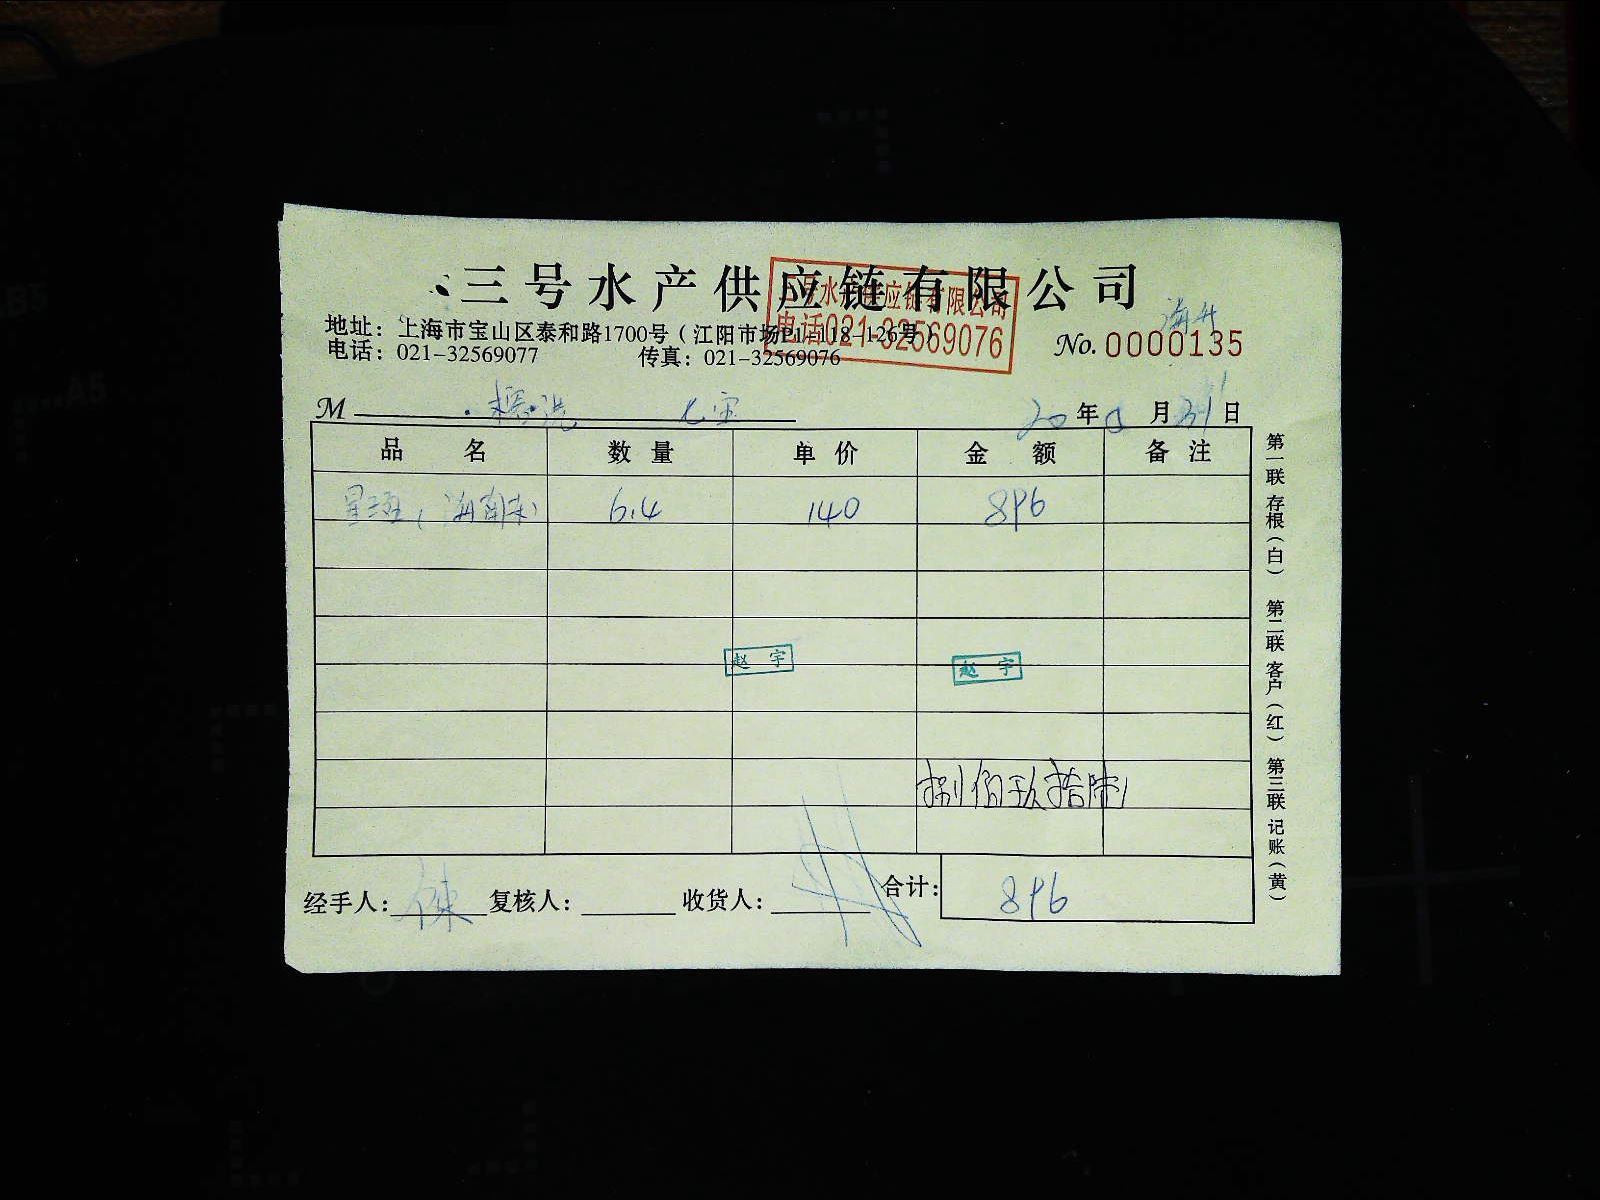 三号水产供应链有限公司
三号水产供应链有限公司
电话021-32569076
地址：上海市宝山区泰和路1700号（江阳市场P1-118-126号）
电话：021-32569077 传真：021-32569076
No. 0000135
M 七宝 20年 月31日
品名 数量 单价 金额 备注
星斑（海南东） 6.4 140 896
赵宇 赵宇
捌佰玖拾陆
经手人： 复核人： 收货人： 合计： 896
第一联存根（白） 第二联客户（红） 第三联记账（黄）